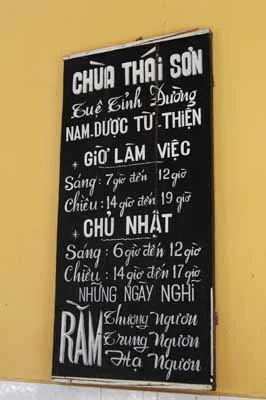 CHÙA THÁI SƠN
Tuệ Tĩnh Đường
NAM DƯỢC TỪ THIỆN
+ GIỜ LÀM VIỆC
Sáng : 7 giờ đến 12 giờ
Chiều : 14 giờ đến 19 giờ
+ CHỦ NHẬT
Sáng : 6 giờ đến 12 giờ
Chiều : 14 giờ đến 17 giờ
NHỮNG NGÀY NGHĨ
RẰM Thượng Ngươn
Trung Ngươn
Hạ Ngươn